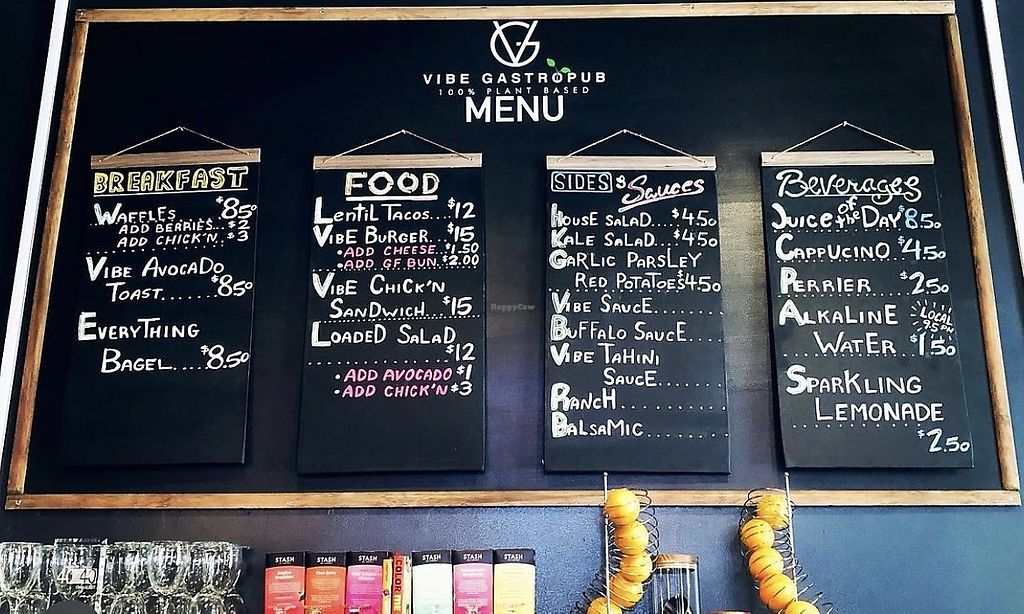 VG
VIBE GASTROPUB
100% PLANT BASED
MENU
BREAKFAST
WAFFLES $8.50
ADD BERRIES... $2
ADD CHICK'N... $3
VIBE AVOCADO
TOAST....... $8.50
EVERYTHING
BAGEL..... $8.50
FOOD
LENTIL TACOS... $12
VIBE BURGER... $15
• ADD CHEESE $1.50
• ADD GF BUN $2.00
VIBE CHICK'N
SANDWICH.... $15
LOADED SALAD
$12
• ADD AVOCADO $1
• ADD CHICK'N $3
SIDES & Sauces
HOUSE SALAD... $4.50
KALE SALAD... $4.50
GARLIC PARSLEY
RED POTATOES $4.50
VIBE SAUCE
BUFFALO SAUCE
VIBE TAHINI
SAUCE
RANCH
BALSAMIC
Beverages
JUICE of the DAY $8.50
CAPPUCINO $4.50
PERRIER $2.50
ALKALINE LOCAL
9.5 PH
WATER $1.50
SPARKLING
LEMONADE
$2.50
HappyCow
STASH STASH STASH COLOR STASH STASH STASH